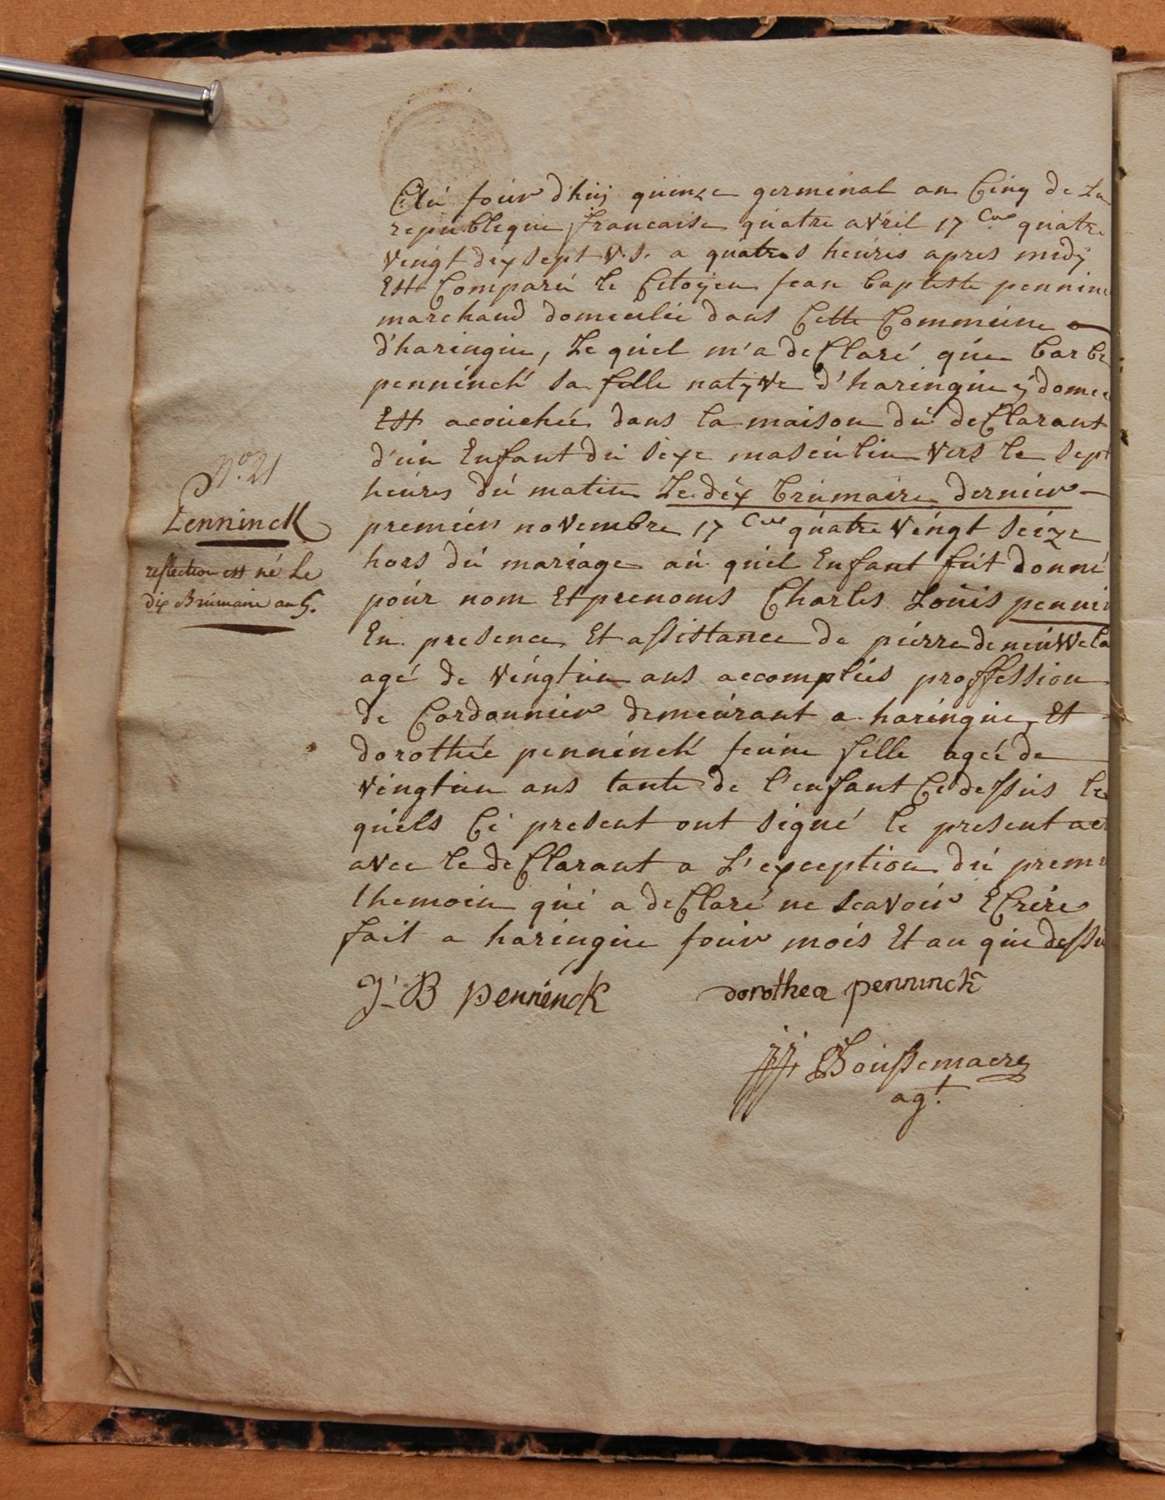 Au jour d'huij quinze germinal an Cinq de La
republique francaise quatre avril 17 Cens quatre
vingt dix sept v.s. a quatres heures apres midij
Est Comparu le Citoijen jean baptiste pennin
marchand domicilié dans Cette Commune
d'haringue, Lequel m'a deClaré que barbe
penninck sa fille natyve d'haringue ij domci
Est acouchée dans la maison du deClarant
d'un Enfant du sexe masculin vers le sept
heures du matin Le dix brumaire dernier
premier novembre 17 Cens quatre vingt seize
hors du mariage au quel Enfant fut donné
pour nom Et prenoms Charles Louis pennin
En presence Et assistance de pierre deneuwela
agé de vingtun ans accomplies proffession
de Cordonnier demeurant a haringue, Et
dorothée penninck jeune fille agée de
vingtun ans tante de l'enfant Cidessus les
quels Ci present ont signé le present act
avec le deClarant a L'exception du premi
themoin qui a deClaré ne scavoir ECrire
fait a haringue jour mois Et an que dessu
N.o 21
Penninck
reflection est né Le
dix Brumaire an 5.
J. B Penninck
dorothea penninck
J.J. Boussemaere
agt.